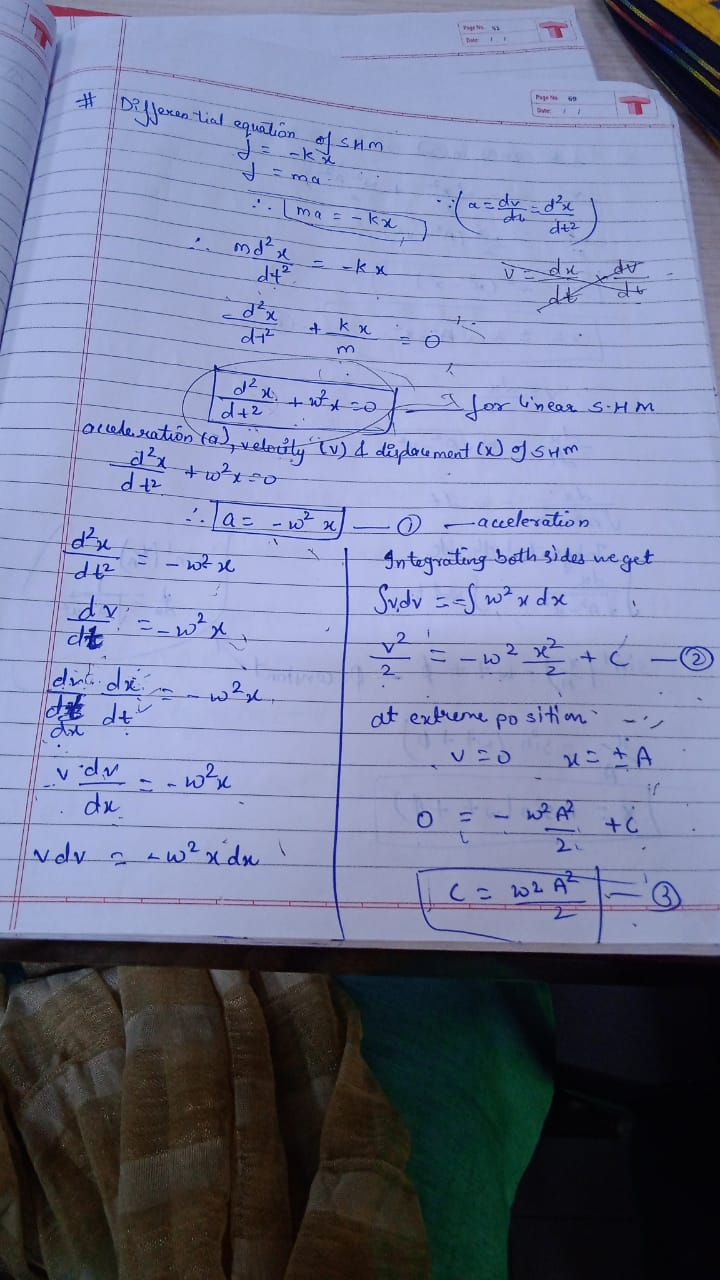 Page No. 52
Date: / /
Page No. 60
Date: / /
# Differential equation of SHM
f = -kx
f = ma
∴ ma = -kx ∵ (a = dv/dt = d²x/dt²)
∴ md²x/dt² = -kx v = dx/dt dv/dt
d²x/dt² + kx/m = 0
d²x/dt² + w²x = 0 for linear S.HM
acceleration (a), velocity (v) & displacement (x) of SHM
d²x/dt² + w²x = 0
∴ a = -w²x — ① — acceleration
d²x/dt² = -w²x
dv/dt = -w²x
dv/dx . dx/dt = -w²x
v.dv/dx = -w²x
vdv = -w²xdx
Integrating both sides we get
∫v.dv = -∫w²xdx
v²/2 = -w² x²/2 + C — ②
at extreme position
v=0 x=±A
0 = -w²A²/2 + C
C = w²A²/2 — ③